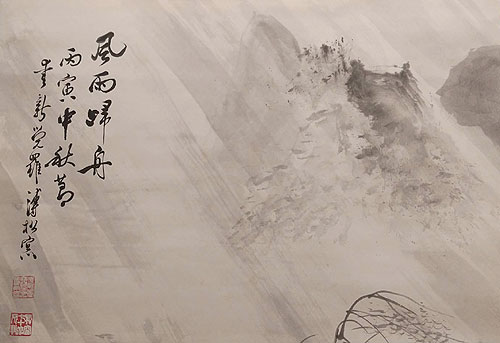 風雨歸舟
丙寅中秋節
愛新覺羅溥松窗